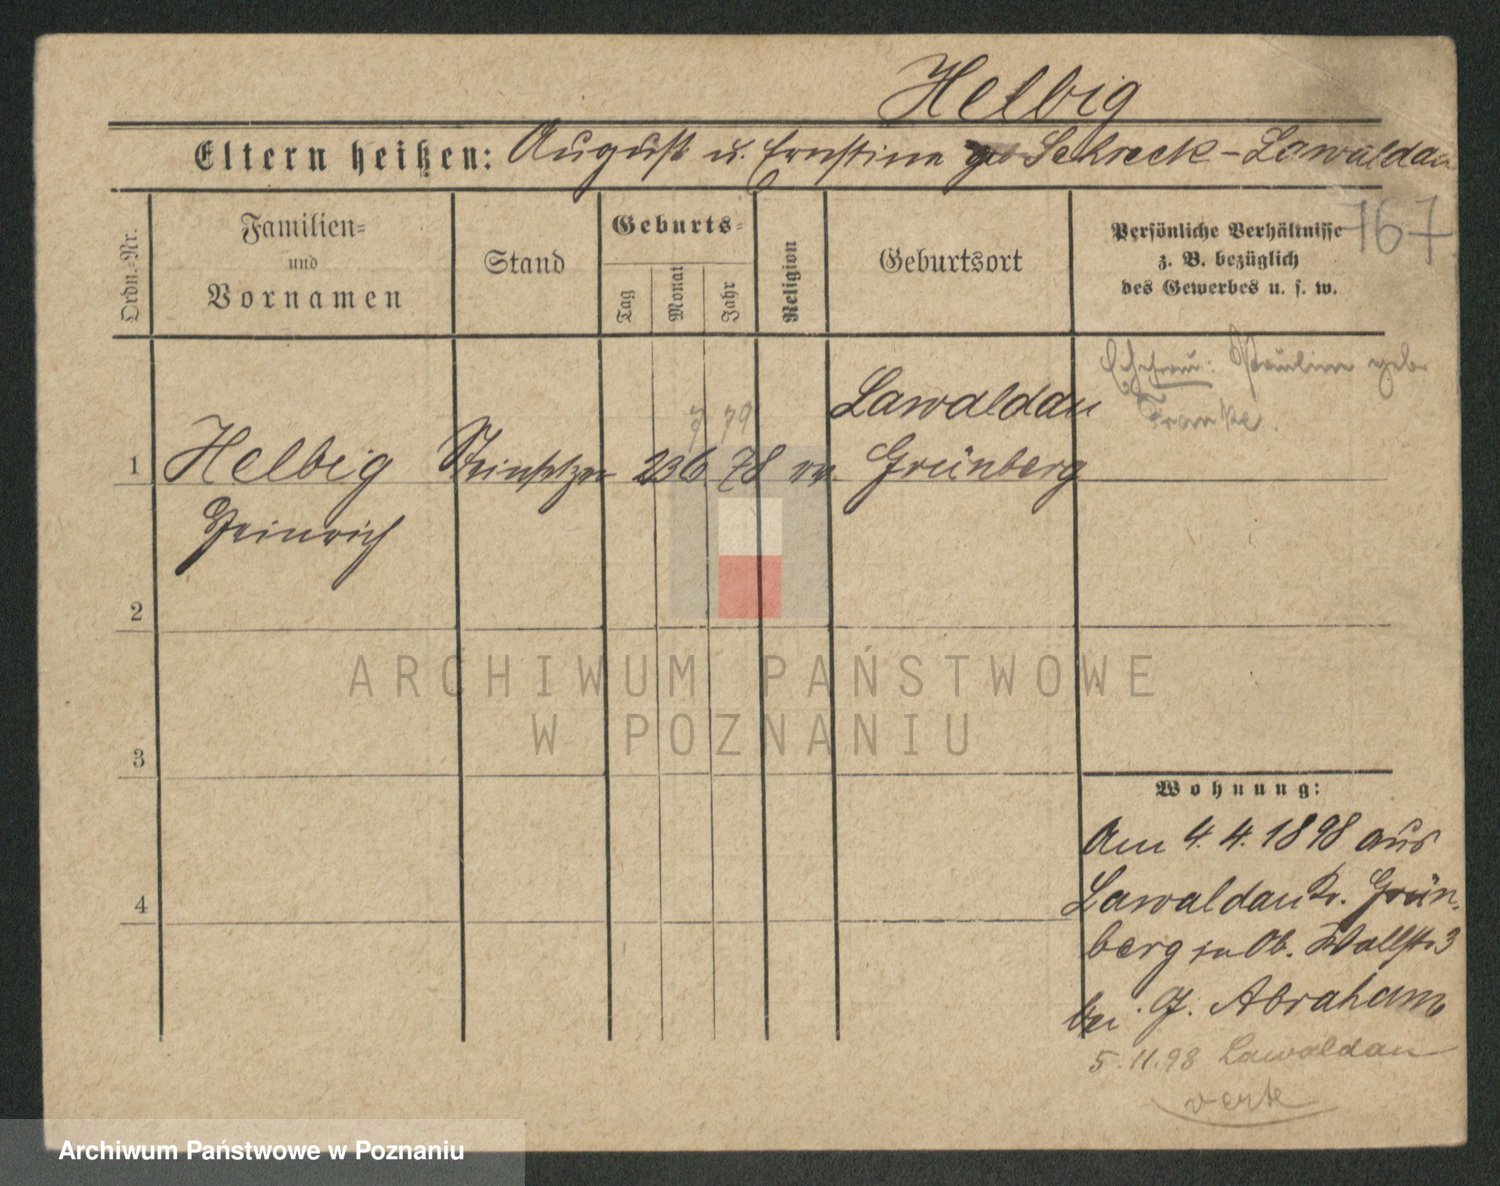 Helbig
Eltern heißen: August u. Ernstine geb Schreck - Lawaldau
767
Ordn.-Nr.
Familien-
und
Vornamen
Stand
Geburts-
Tag
Monat
Jahr
Religion
Geburtsort
Persönliche Verhältnisse
z. B. bezüglich
des Gewerbes u. s. w.
Ehefrau: Pauline geb.
Franke.
7 79
Lawaldau
1 Helbig Steinsetzer 23 6 78 ev. Grünberg
Heinrich
2
3
4
Wohnung:
Am 4. 4. 1898 aus
Lawaldau Kr. Grün-
berg Ob. Wallstr 3
bei J. Abraham
5.11.98 Lawaldau
verte
ARCHIWUM PAŃSTWOWE
W POZNANIU
Archiwum Państwowe w Poznaniu